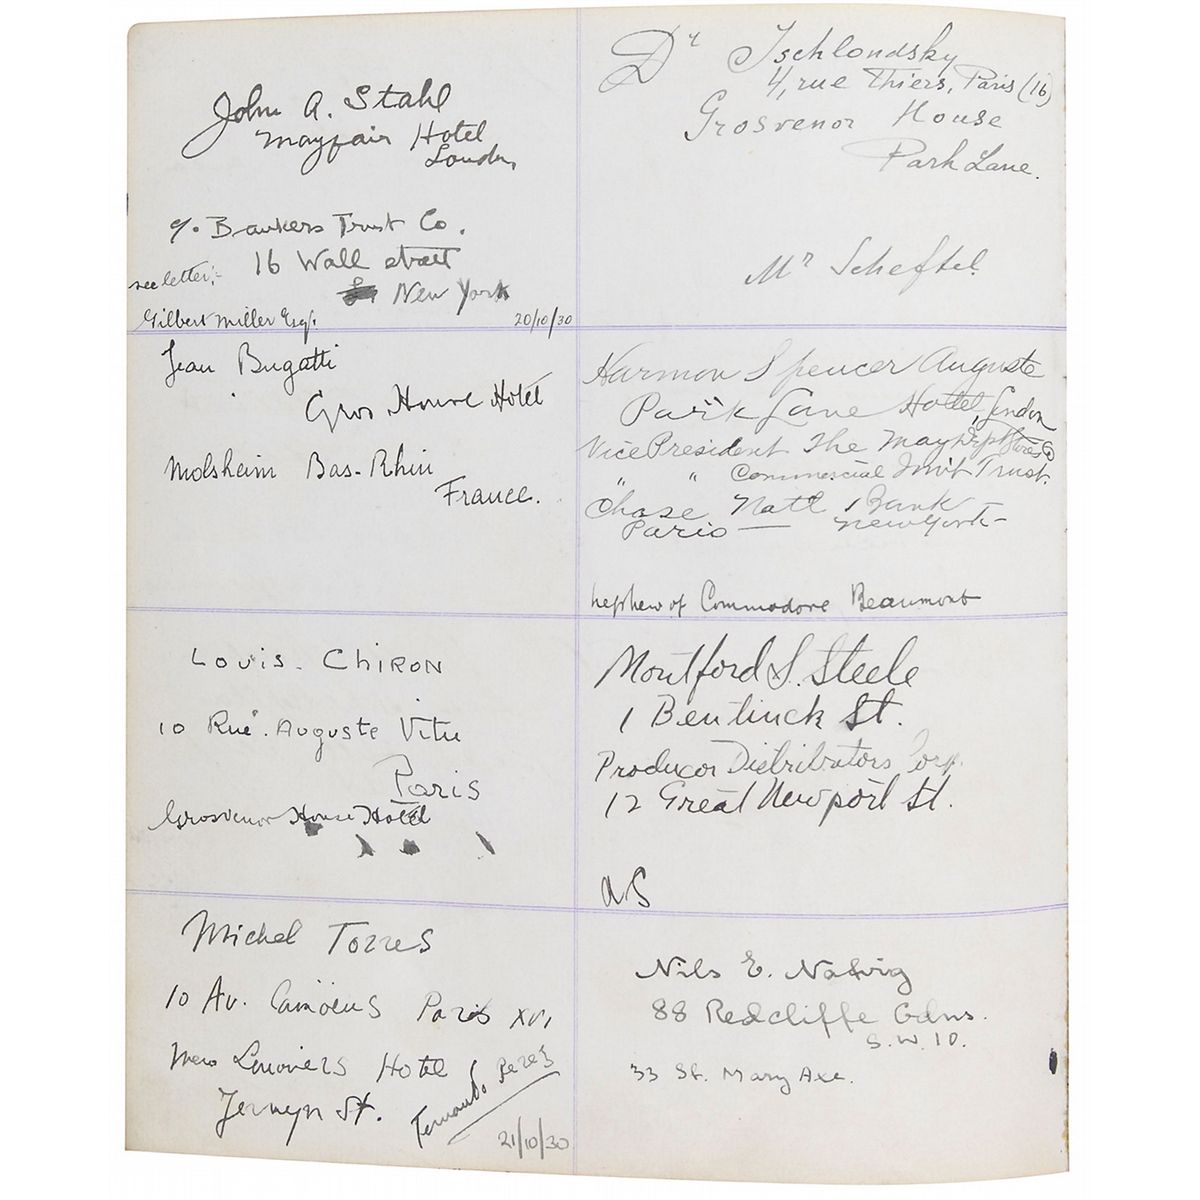 John A. Stahl
Mayfair Hotel
London
c/o Bankers Trust Co.
16 Wall street
New York
see letter:-
Gilbert Miller Esq.
20/10/30
Jean Bugatti
Gros House Hotel
Molsheim Bas-Rhin
France.
Louis. Chiron
10 Rue. Auguste Vitu
Paris
Grosvenor House Hotel
Michel Torres
10 Av. Camoens Paris XVI
Hotel
Jermyn St.
Fernando Perez
21/10/30
Dr Tschlondsky
4, rue Thiers, Paris (16)
Grosvenor House
Park Lane.
Mr Scheftel.
Harmon Spencer Auguste
Park Lane Hotel, London
Vice President The May Dept Stores Co
" " Commercial Inv't Trust.
Chase Nat'l Bank
Paris — New York —
nephew of Commodore Beaumont
Montford S. Steele
1 Bentinck St.
Producer Distributors Corp.
12 Great Newport St.
AS
Nils E. Natvig
88 Redcliffe Gdns.
S.W.10.
33 St. Mary Axe.